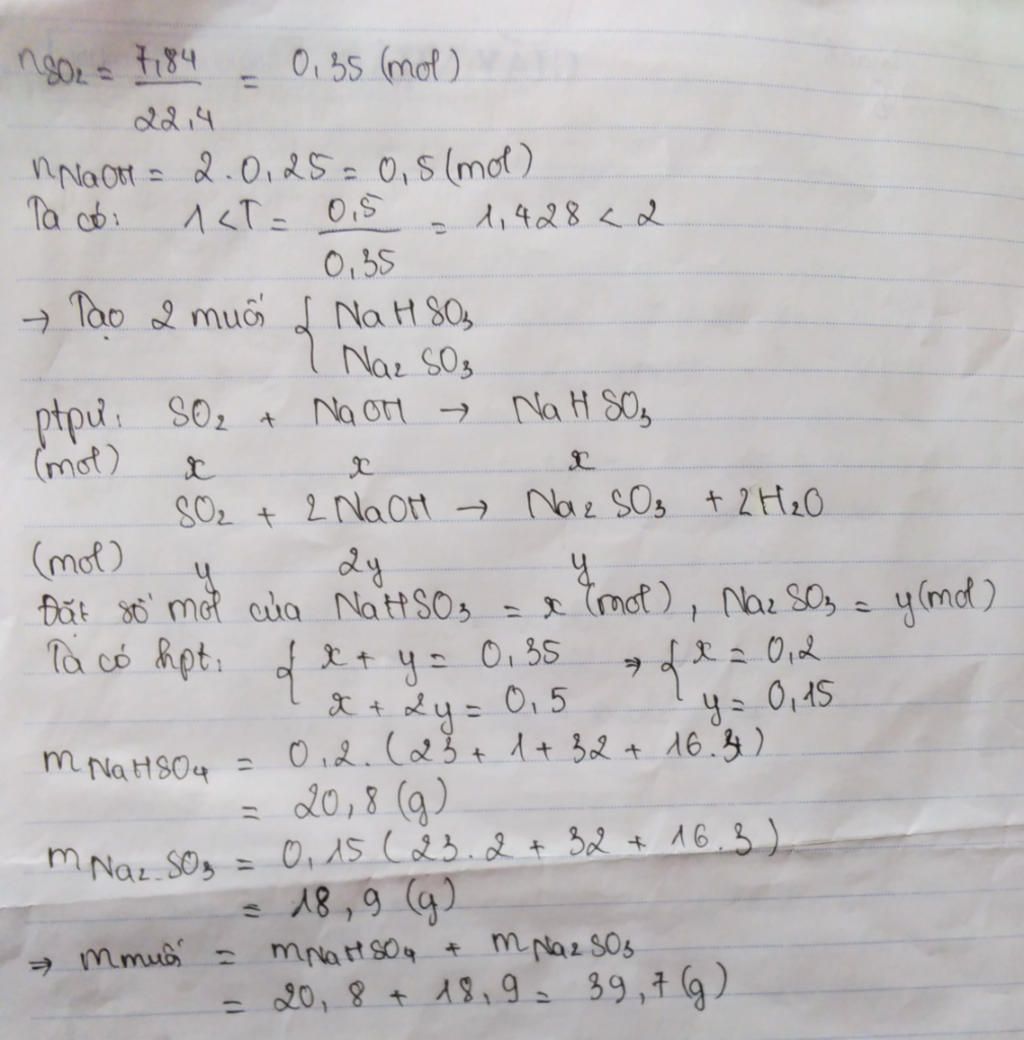 nSO2 = 7,84/22,4 = 0,35 (mol)
nNaOH = 2.0,25 = 0,5 (mol)
Ta có: 1 < T = 0,5/0,35 = 1,428 < 2
→ Tạo 2 muối { NaHSO3
Na2SO3
ptpứ: SO2 + NaOH → NaHSO3
(mol) x x x
SO2 + 2NaOH → Na2SO3 + 2H2O
(mol) y 2y y
Đặt số mol của NaHSO3 = x (mol), Na2SO3 = y (mol)
Ta có hpt: { x + y = 0,35 ⇒ { x = 0,2
x + 2y = 0,5 y = 0,15
mNaHSO4 = 0,2.(23 + 1 + 32 + 16.3)
= 20,8 (g)
mNa2SO3 = 0,15 (23.2 + 32 + 16.3)
= 18,9 (g)
⇒ mmuối = mNaHSO4 + mNa2SO3
= 20,8 + 18,9 = 39,7 (g)